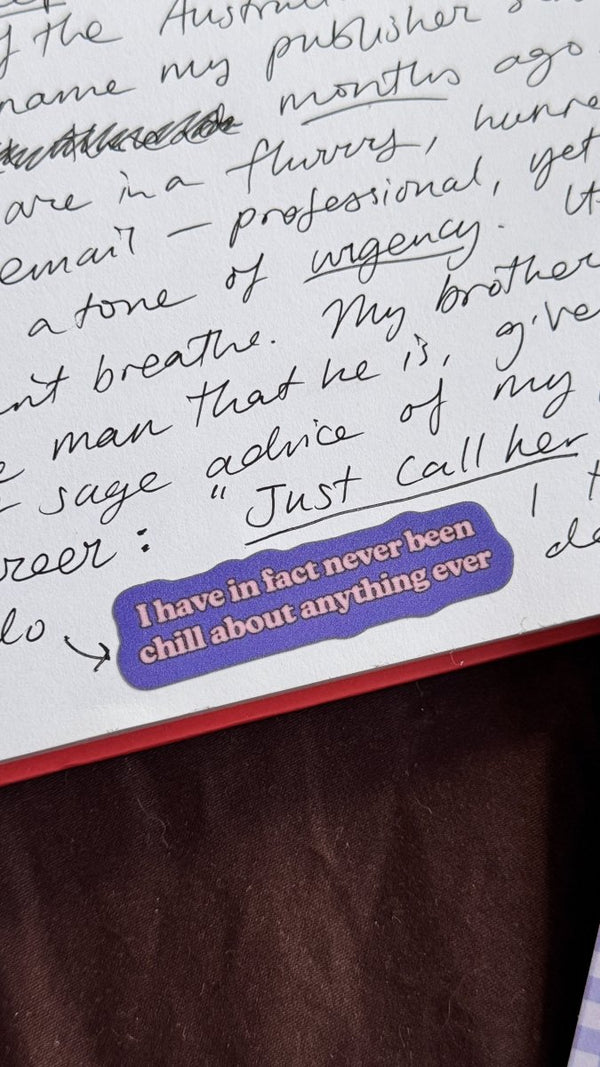 the Austral
name my publisher
months ago
are in a flurry,
email — professional, yet
a tone of urgency.
breathe. My brother
man that he is, give
sage advice of my
reer: "Just call her
I have in fact never been
chill about anything ever